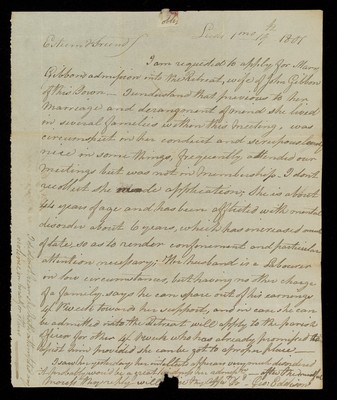 Esteem'd Friend/ Leeds 1 mo 19th 1801
I am requested to apply for Mary
Gibbons admission into the Retreat, wife of John Gibbon
of this Town — I understand that previous to her
Marriage and derangement of mind she lived
in several families within this Meeting, was
circumspect in her conduct and scrupulously
nice in some things, frequently attended our
meetings but was not in membership. I don't
recollect she made application; She is about
44 years of age and has been afflicted with mental
disorder about 6 years, which has increased much
of late, so as to render confinement and particular
attention necessary; The husband is a Labourer
in low circumstances, but having no other charge
of a family, says he can spare out of his earnings
4/ Week towards her support, and in case she can
be admitted into the Retreat will apply to the parish
Officers for other 4/ Week who has already promised to
assist him provided she can be got to a proper place —
I saw her yesterday her intellects appears very much disordered